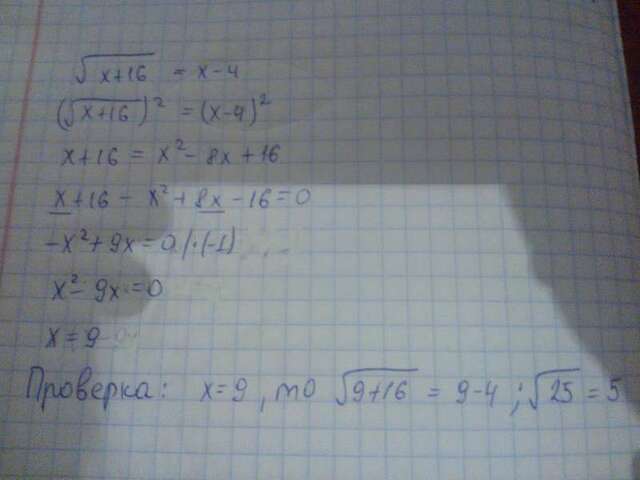 √x+16 = x-4
(√x+16)² = (x-4)²
x+16 = x² - 8x + 16
x+16 - x² + 8x - 16 = 0
-x² + 9x = 0 /·(-1)
x² - 9x = 0
x = 9
Проверка: x=9, то √9+16 = 9-4; √25 = 5